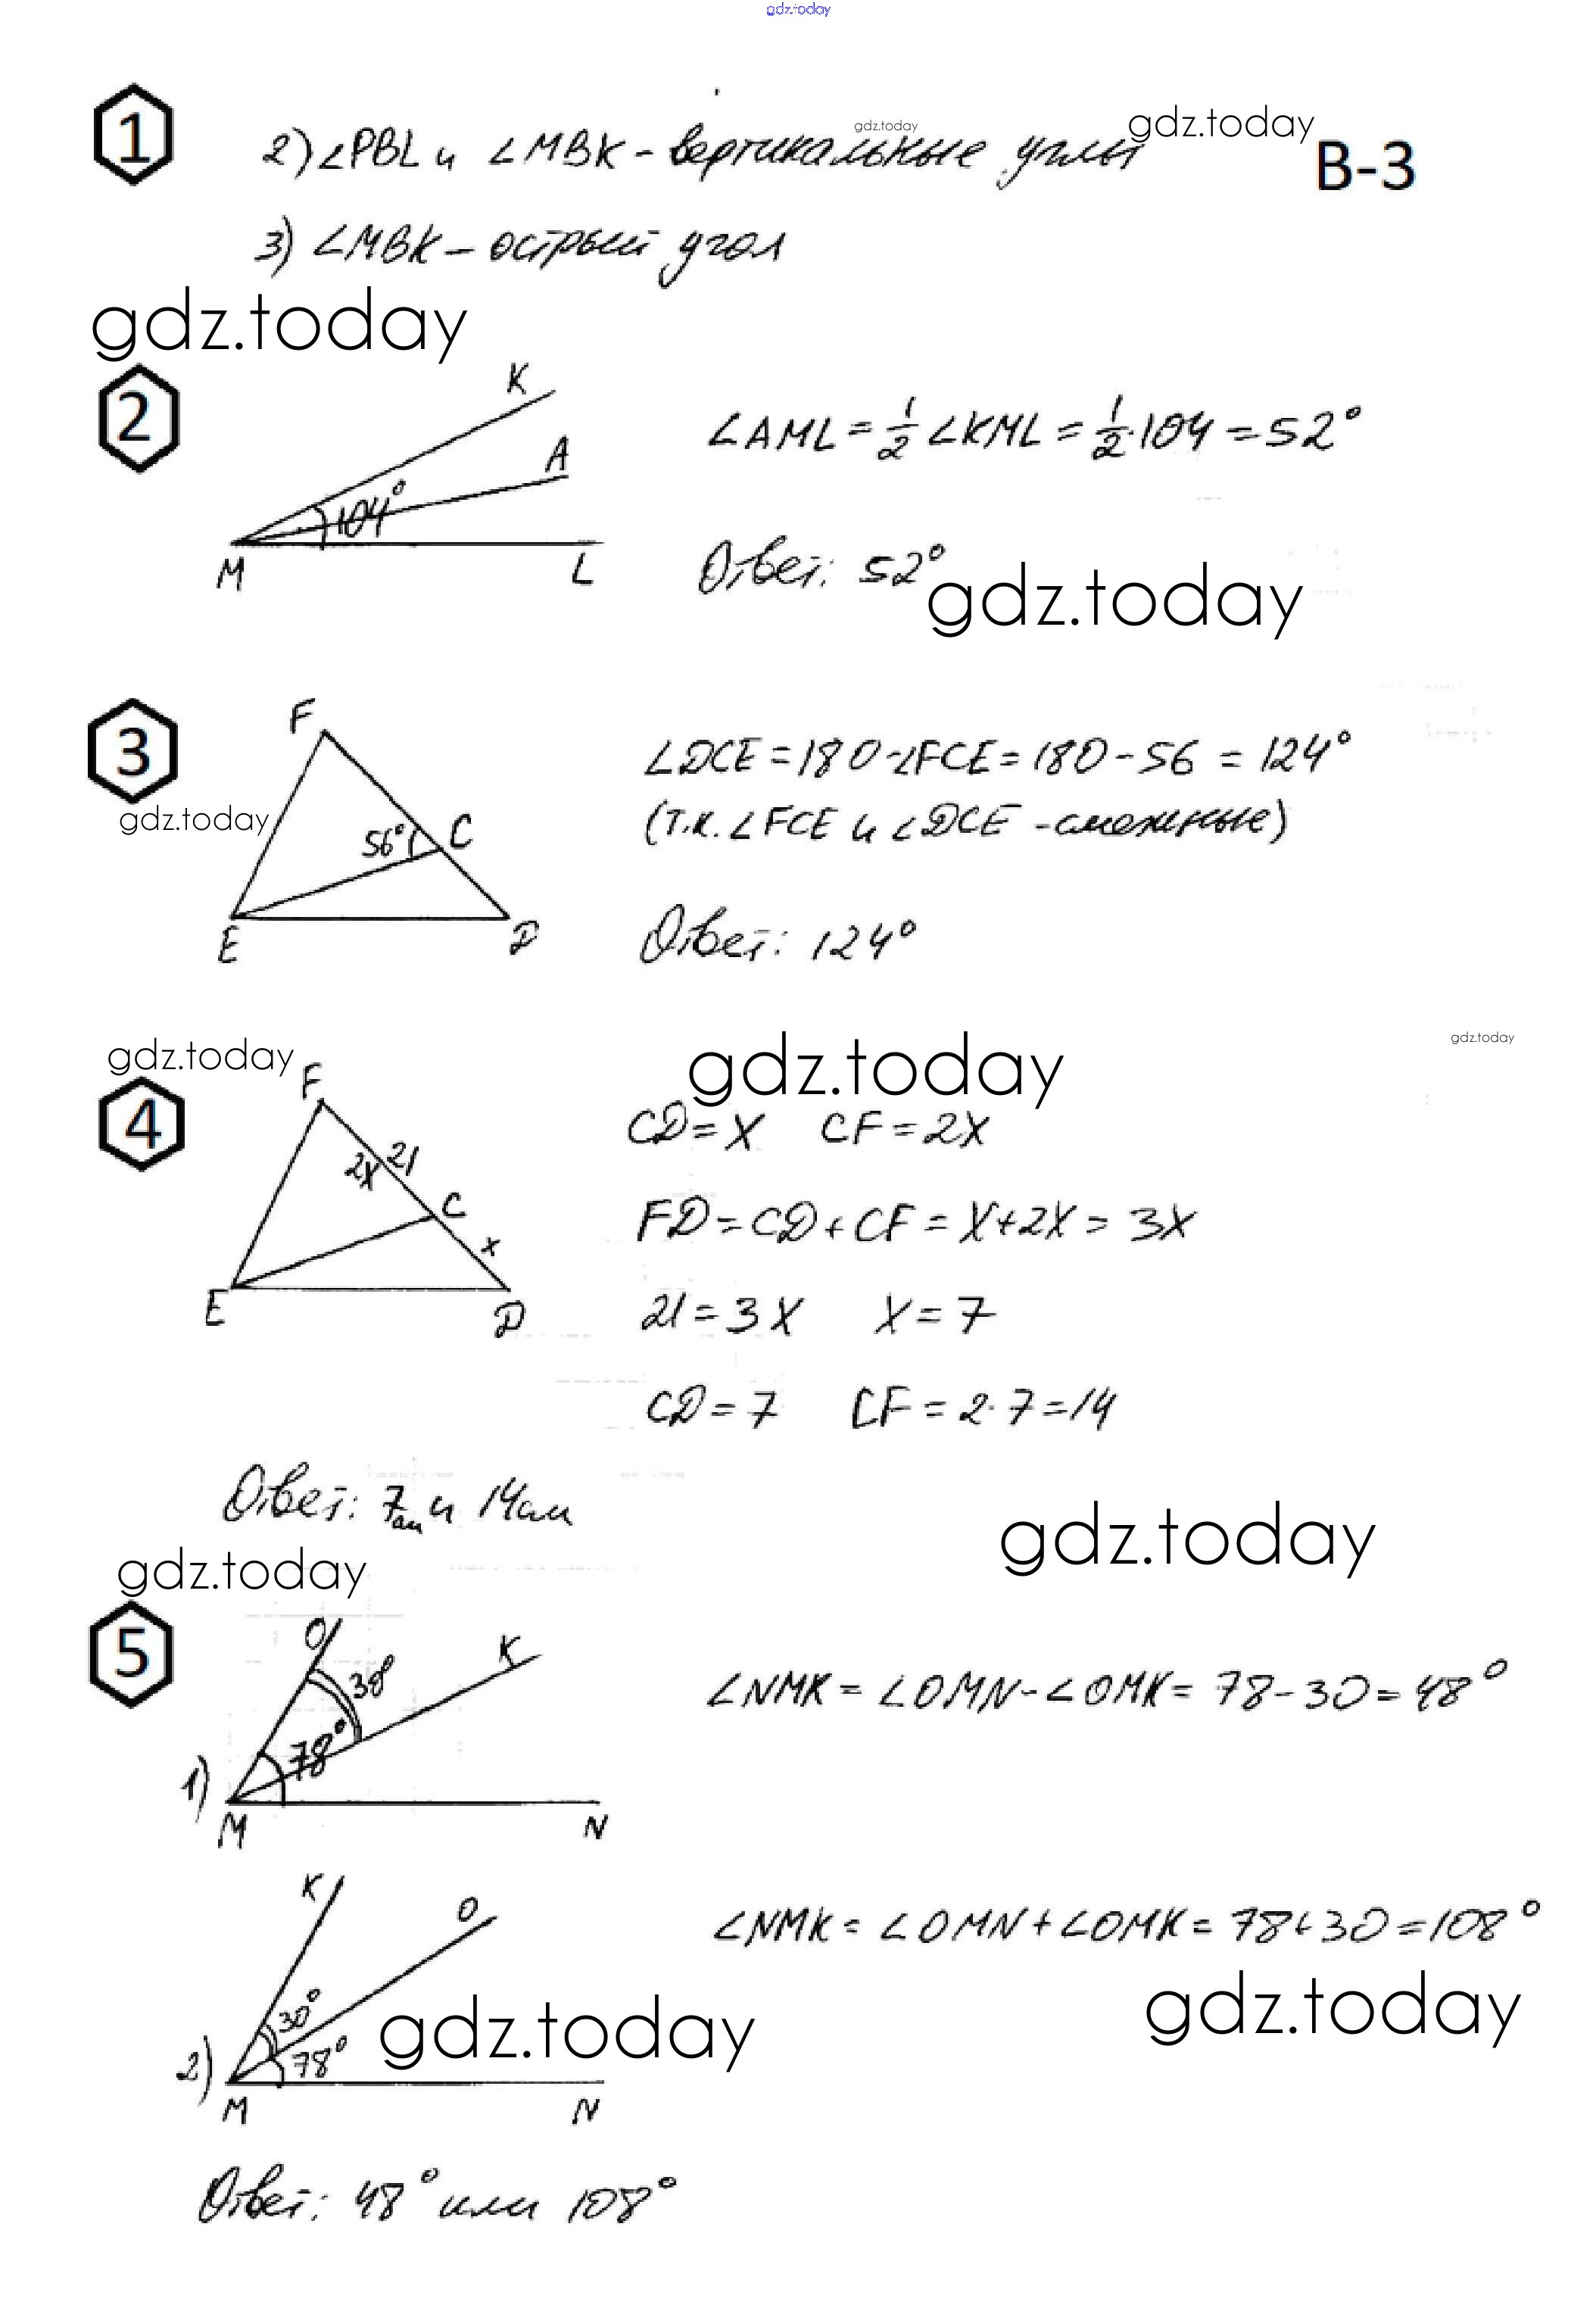 gdz.today
1
2) ∠PBL и ∠MBK - вертикальные углы
gdz.today
gdz.today
В-3
3) ∠MBK - острый угол
gdz.today
2
K
A
104°
M
L
∠AML = 1/2 ∠KML = 1/2 · 104 = 52°
Ответ: 52°
gdz.today
3
F
56°
C
E
D
∠DCE = 180 - ∠FCE = 180 - 56 = 124°
(т.к. ∠FCE и ∠DCE - смежные)
gdz.today
Ответ: 124°
gdz.today
gdz.today
gdz.today
4
F
2x
21
C
x
E
D
CD = x CF = 2x
FD = CD + CF = x + 2x = 3x
21 = 3x x = 7
CD = 7 CF = 2 · 7 = 14
Ответ: 7 см и 14 см
gdz.today
gdz.today
5
1)
O
K
30°
78°
M
N
∠NMK = ∠OMN - ∠OMK = 78 - 30 = 48°
2)
K
O
30°
78°
M
N
∠NMK = ∠OMN + ∠OMK = 78 + 30 = 108°
gdz.today
gdz.today
Ответ: 48° или 108°